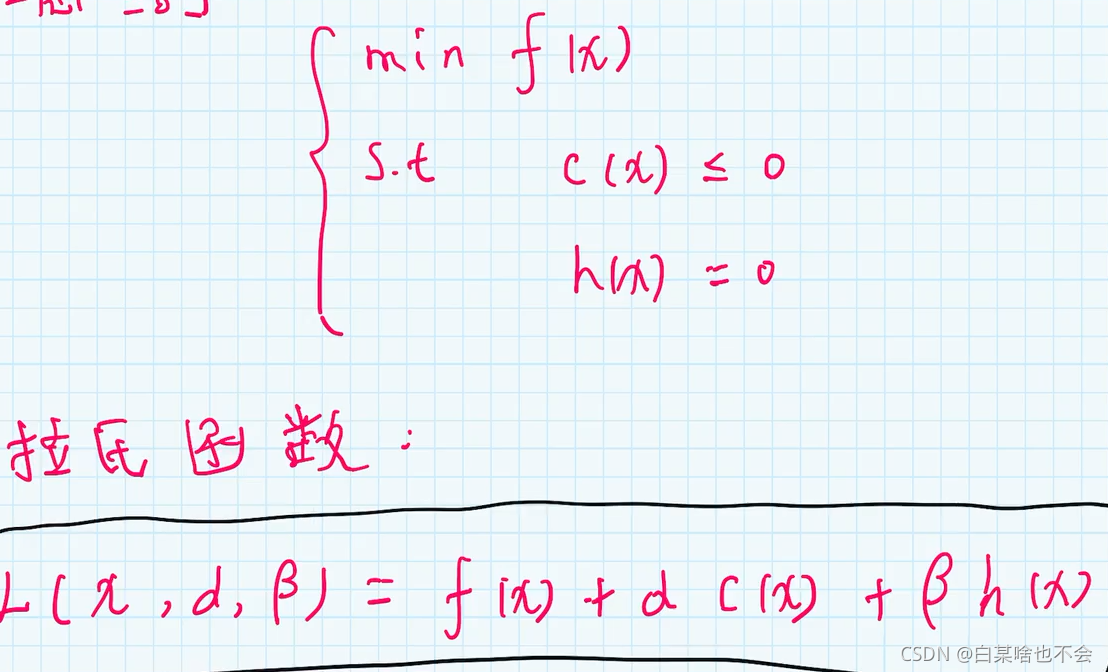 min f(x)
s.t c(x) ≤ 0
h(x) = 0
拉氏函数:
L(x, d, β) = f(x) + d c(x) + β h(x)
CSDN @白某啥也不会